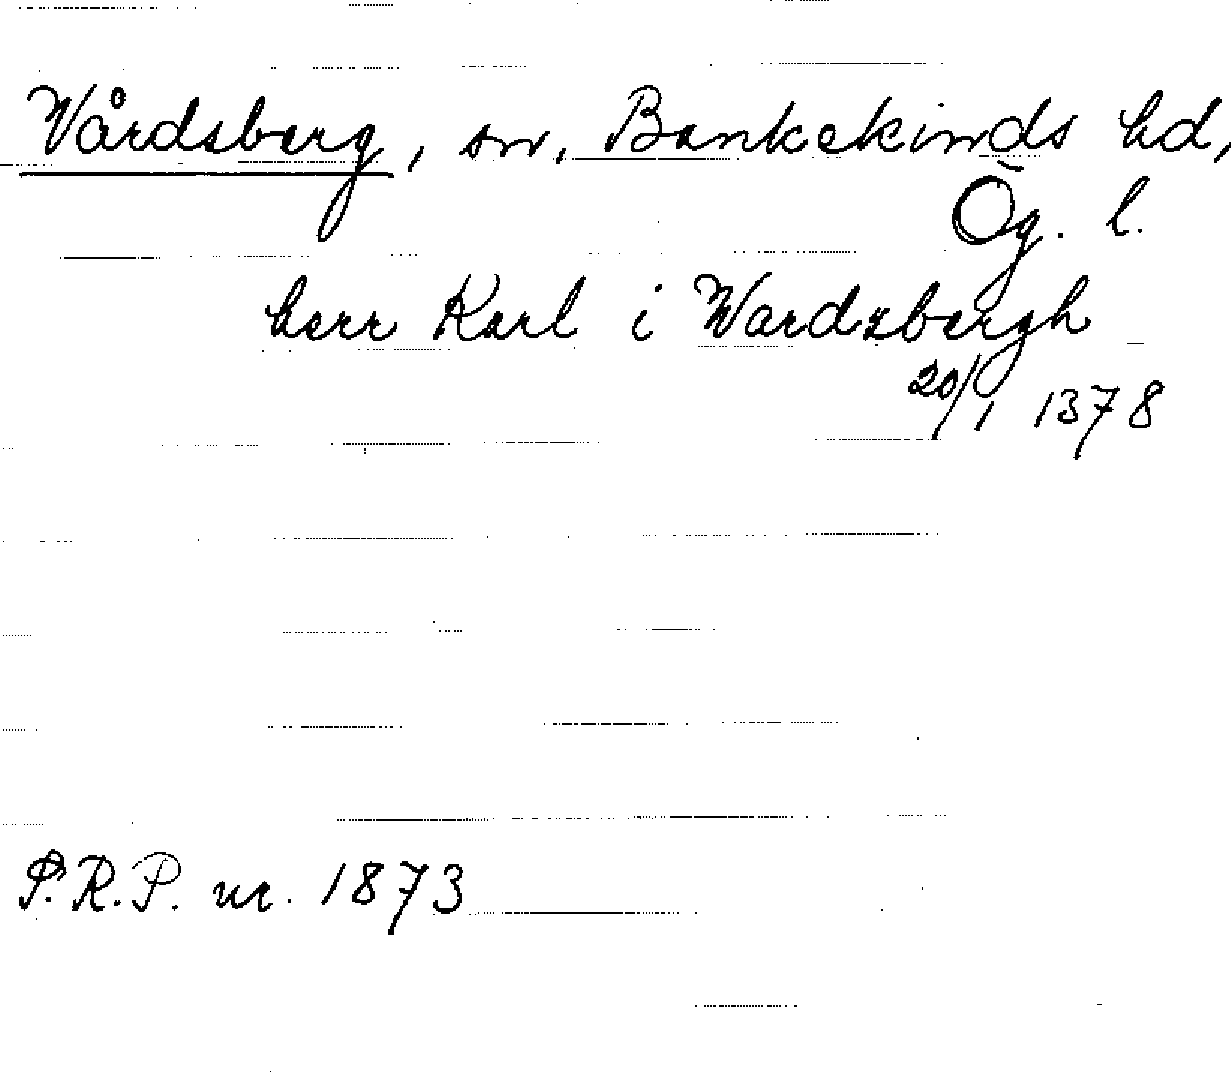 Vårdsberg, sn, Bankekinds hd,
Ög. l.
herr Karl i Wardzbergh
20/1 1378
P.R.P. nr. 1873